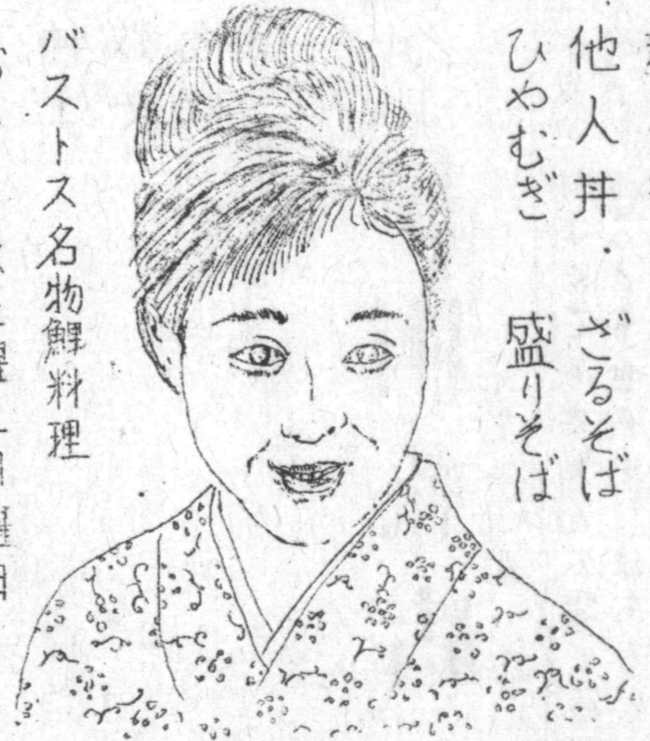 他人丼・ざるそば
ひやむぎ 盛りそば
バストス名物鯉料理